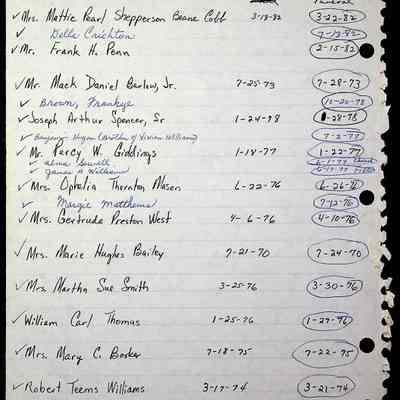 Funeral
✓ Mrs. Mattie Pearl Shepperson Beane Cobb 3-18-82 3-22-82
✓ Della Crichton 7-13-82
✓ Mr. Frank H. Penn 2-15-82
✓ Mr. Mack Daniel Barlow, Jr. 7-25-73 7-28-73
✓ Brown, Frankye 10-22-78
✓ Joseph Arthur Spencer, Sr 1-24-78 1-28-78
✓ Hogan (brother of Vivian Williams) 7-2-77
✓ Mr. Percy W. Giddings 1-18-77 1-22-77
✓ Alma Sewell 6-1-77
✓ James A Williams
✓ Mrs. Ophelia Thornton Mason 6-22-76 6-26-76
✓ Margie Matthews 7-12-76
✓ Mrs. Gertrude Preston West 4-6-76 4-10-76
✓ Mrs. Marie Hughes Bailey 7-21-70 7-24-70
✓ Mrs. Martha Sue Smith 3-25-76 3-30-76
✓ William Carl Thomas 1-25-76 1-29-76
✓ Mrs. Mary C. Booker 7-18-75 7-22-75
✓ Robert Teems Williams 3-17-74 3-21-74